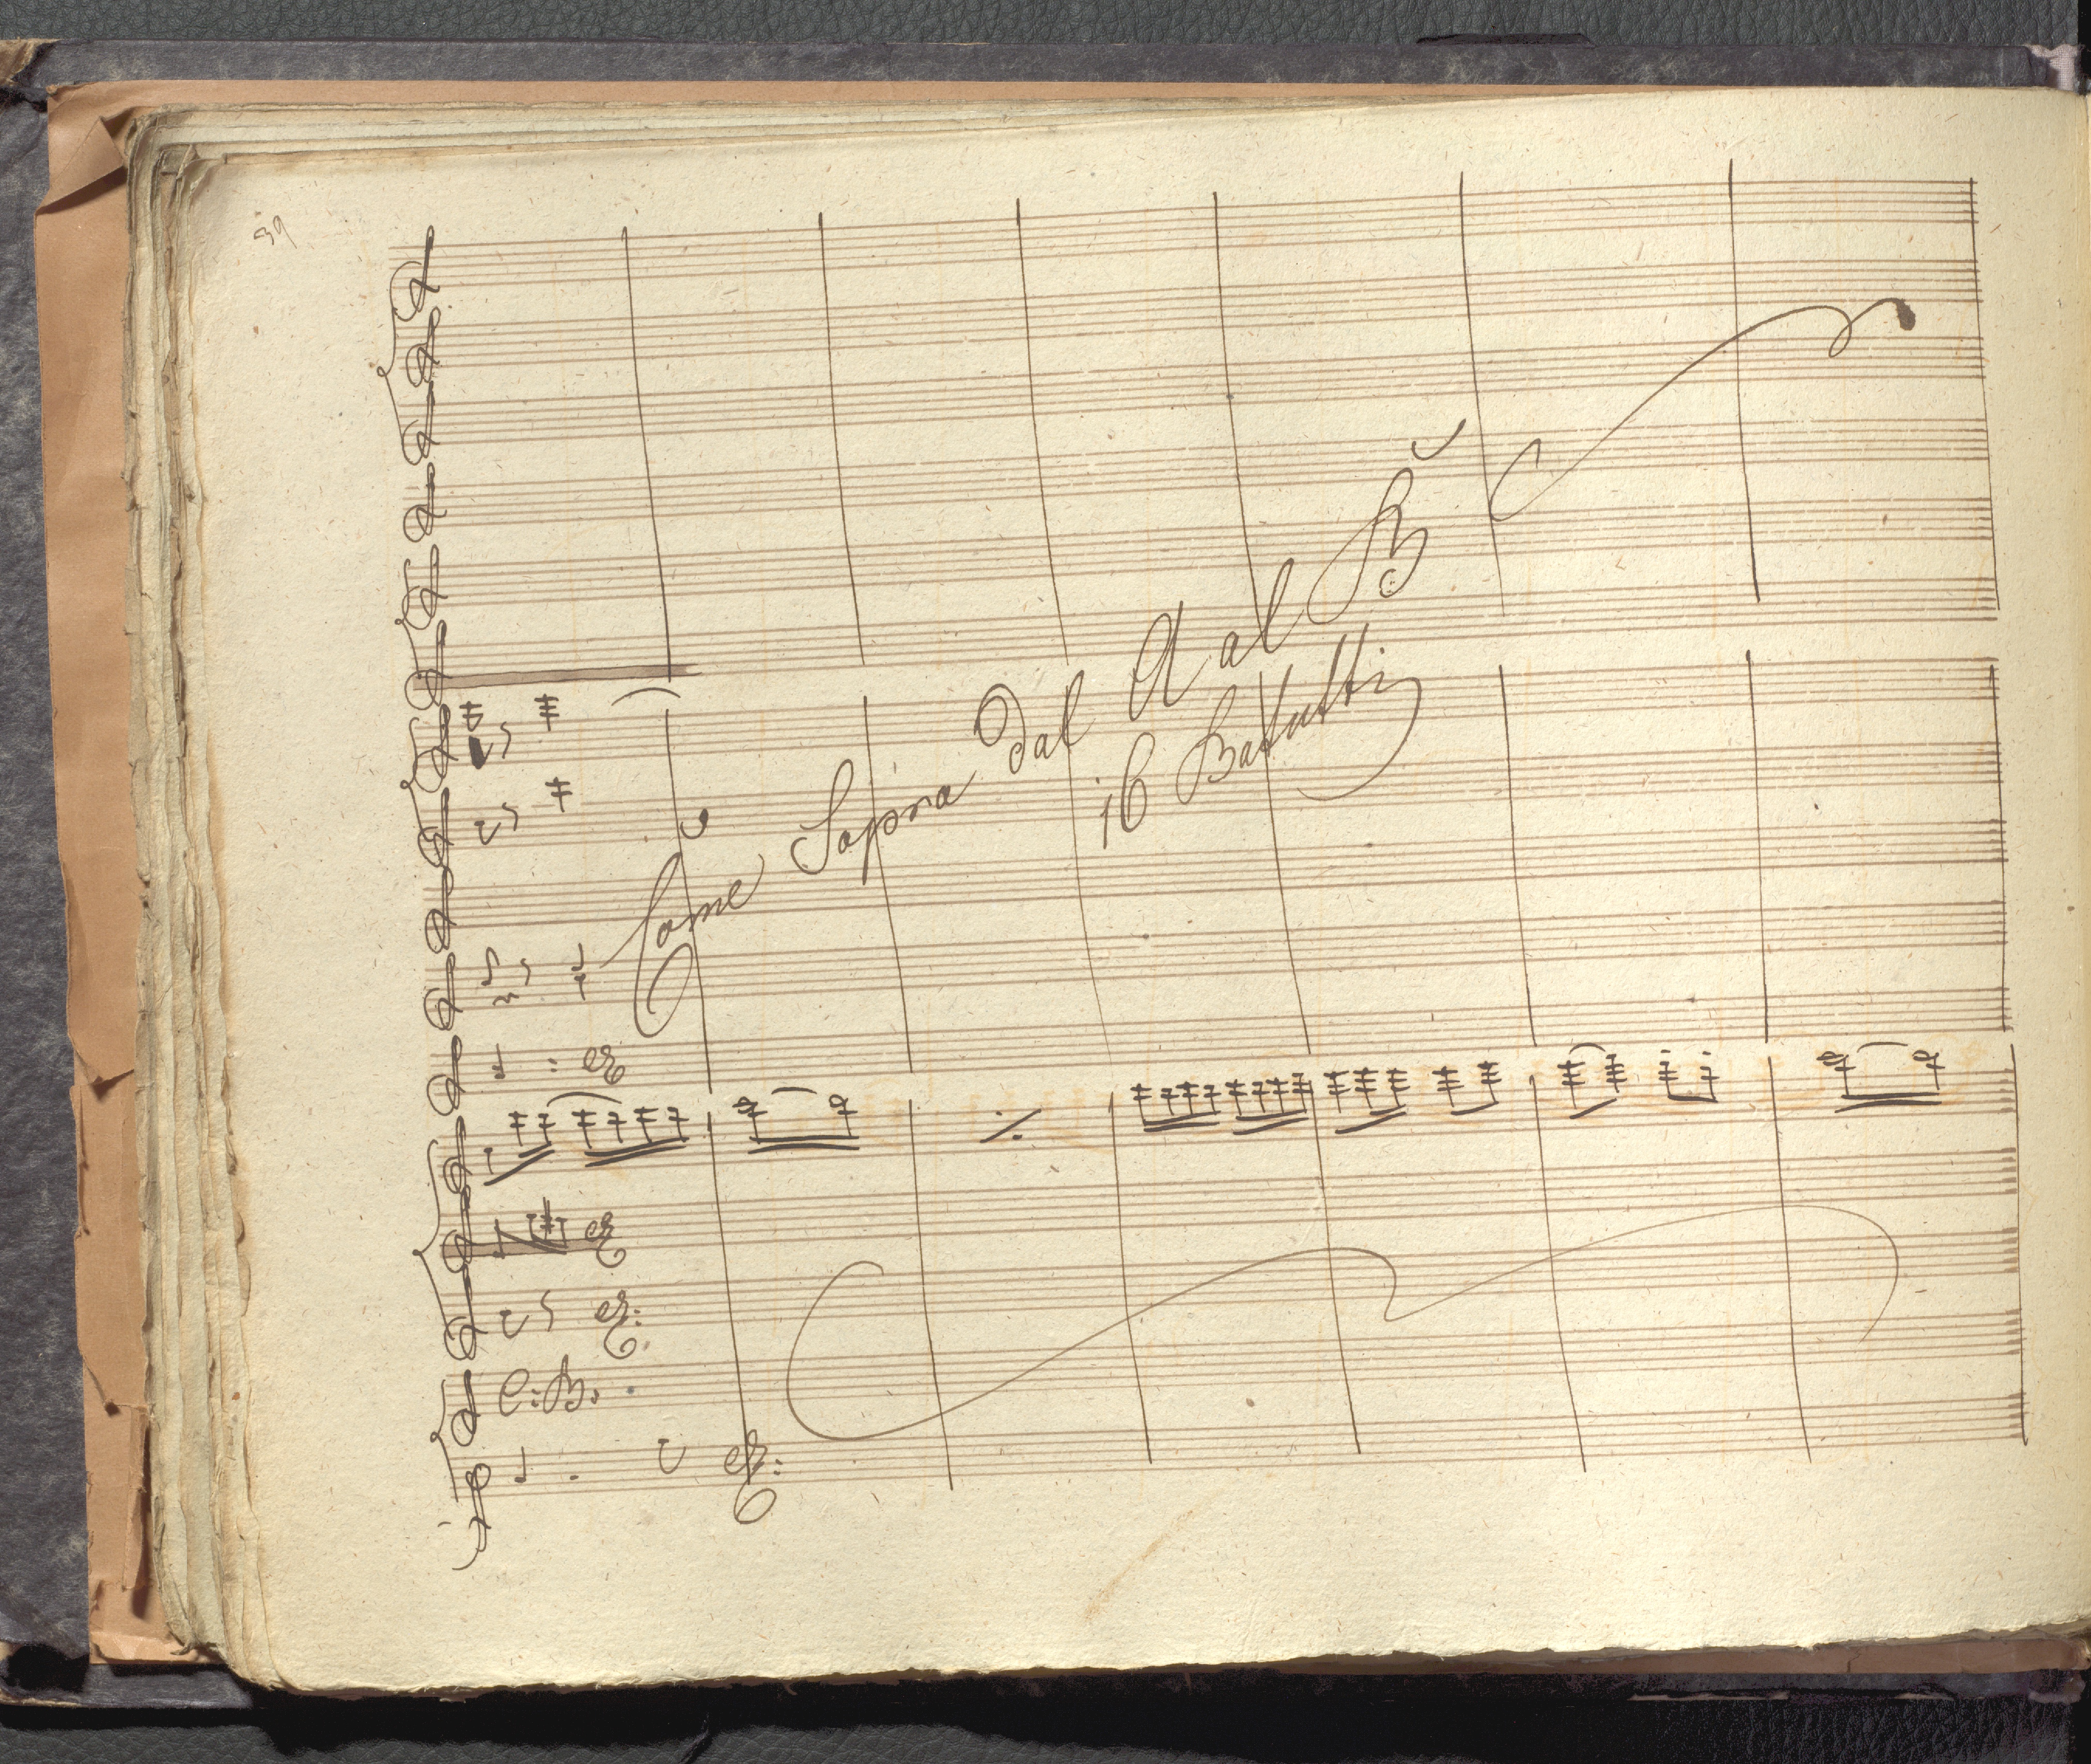 39
Come Sopra dal A al B
16 Battutti
C: B: